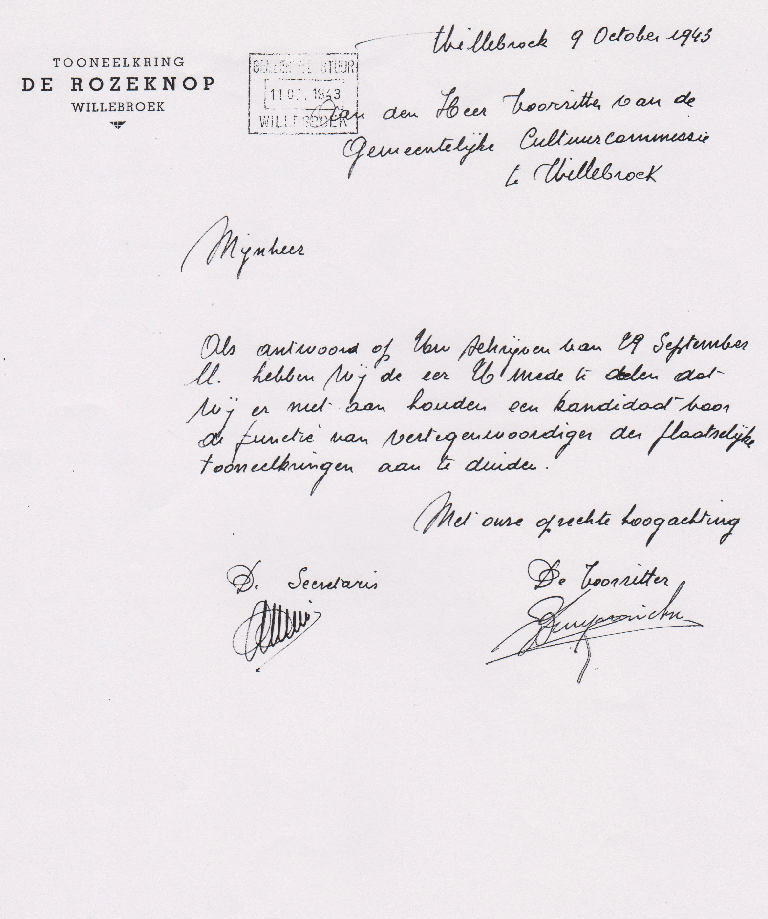 Willebroek 9 October 1943
TOONEELKRING
DE ROZEKNOP
WILLEBROEK
11 OCT. 1943
WILLEBROEK
Aan den Heer Voorzitter van de
Gemeentelijke Cultuurcommissie
te Willebroek
Mijnheer
Als antwoord op Uw schrijven van 29 September
ll. hebben wij de eer U mede te delen dat
wij er niet aan houden een kandidaat voor
de functie van vertegenwoordiger der plaatselijke
tooneelkringen aan te duiden.
Met onze oprechte hoogachting
De Secretaris
De Voorzitter